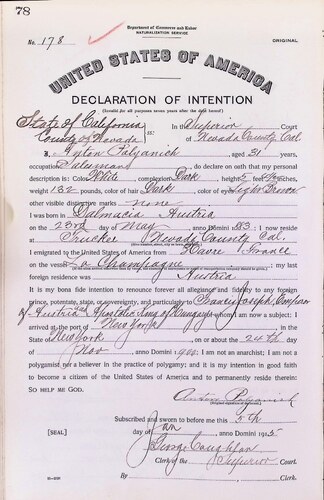 78
Department of Commerce and Labor
NATURALIZATION SERVICE
No. 178
ORIGINAL.
UNITED STATES OF AMERICA
DECLARATION OF INTENTION
(Invalid for all purposes seven years after the date hereof)
State of California
County of Nevada
ss:
In the Superior Court
of Nevada County Cal
I, Anton Polyanich, aged 31 years,
occupation Salesman, do declare on oath that my personal
description is: Color White, complexion Dark, height 5 feet inches,
weight 132 pounds, color of hair Dark, color of eyes Light Brown
other visible distinctive marks none
I was born in Dalmacia Austria
on the 23rd day of May, anno Domini 1883; I now reside
at Truckee Nevada County Cal.
I emigrated to the United States of America from Havre France
on the vessel Champagne; my last
foreign residence was Austria
It is my bona fide intention to renounce forever all allegiance and fidelity to any foreign
prince, potentate, state, or sovereignty, and particularly to Francis Joseph Emperor
of Austria and Apostolic King of Hungary, of whom I am now a subject; I
arrived at the port of New York, in the
State of New York, on or about the 24th day
of Nov, anno Domini 1900; I am not an anarchist; I am not a
polygamist nor a believer in the practice of polygamy; and it is my intention in good faith
to become a citizen of the United States of America and to permanently reside therein:
SO HELP ME GOD.
Anton Polyanich
Subscribed and sworn to before me this 5th
[SEAL] day of Jan, anno Domini 1915
George Coughlan
Clerk of the Superior Court.
By, Clerk.